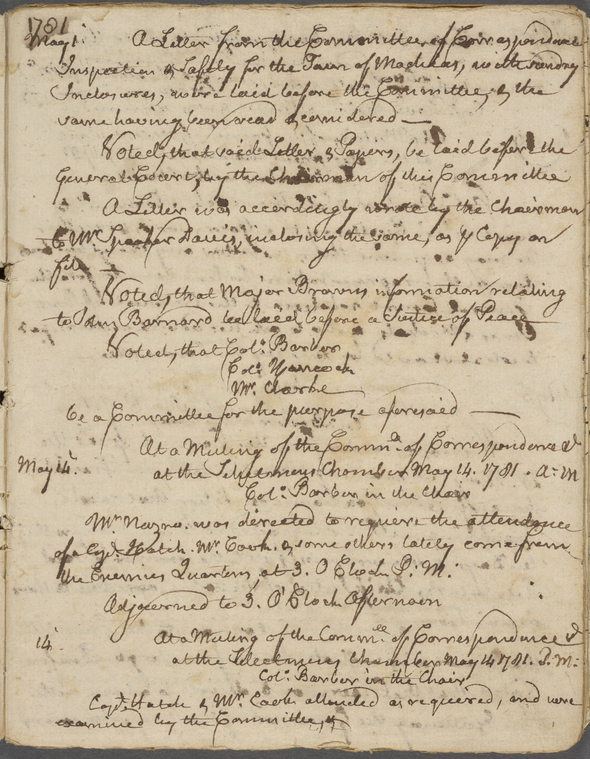 1781
May 1 A Letter from the Committee of Correspondence
Inspection & Safety for the Town of Machias, with sundry
Inclosures, were laid before the Committee, & the
same having been read & considered —
Voted, that said Letter & Papers, be laid before the
General Court, by the Chairman of this Committee
A Letter was accordingly wrote by the Chairman
to Mr Speaker Davis, inclosing the same, as ꝑ Copy on
file —
Voted, that Major Browns information relating
to John Barnard be laid before a Justice of Peace
Voted, that Colo. Barber
Colo.
Mr. Clarke
be a Committee for the purpose aforesaid —
At a Meeting of the Comm. of Correspondence &c
May 14. at the Selectmens Chamber May 14. 1781. A: M
Colo. Barber in the Chair
Mr Nazro. was directed to require the attendance
of Capt. Hatch. Mr. Cook. & some others lately come from
the Enemies Quarters, at 3. O'Clock P: M:
Adjourned to 3. O'Clock Afternoon
14. At a Meeting of the Comm. of Correspondence &
at the Selectmens Chamber May 14 1781. P. M:
Colo. Barber in the Chair
Capt. Hatch & Mr. Cook attended as required, and were
examined by the Committee, &